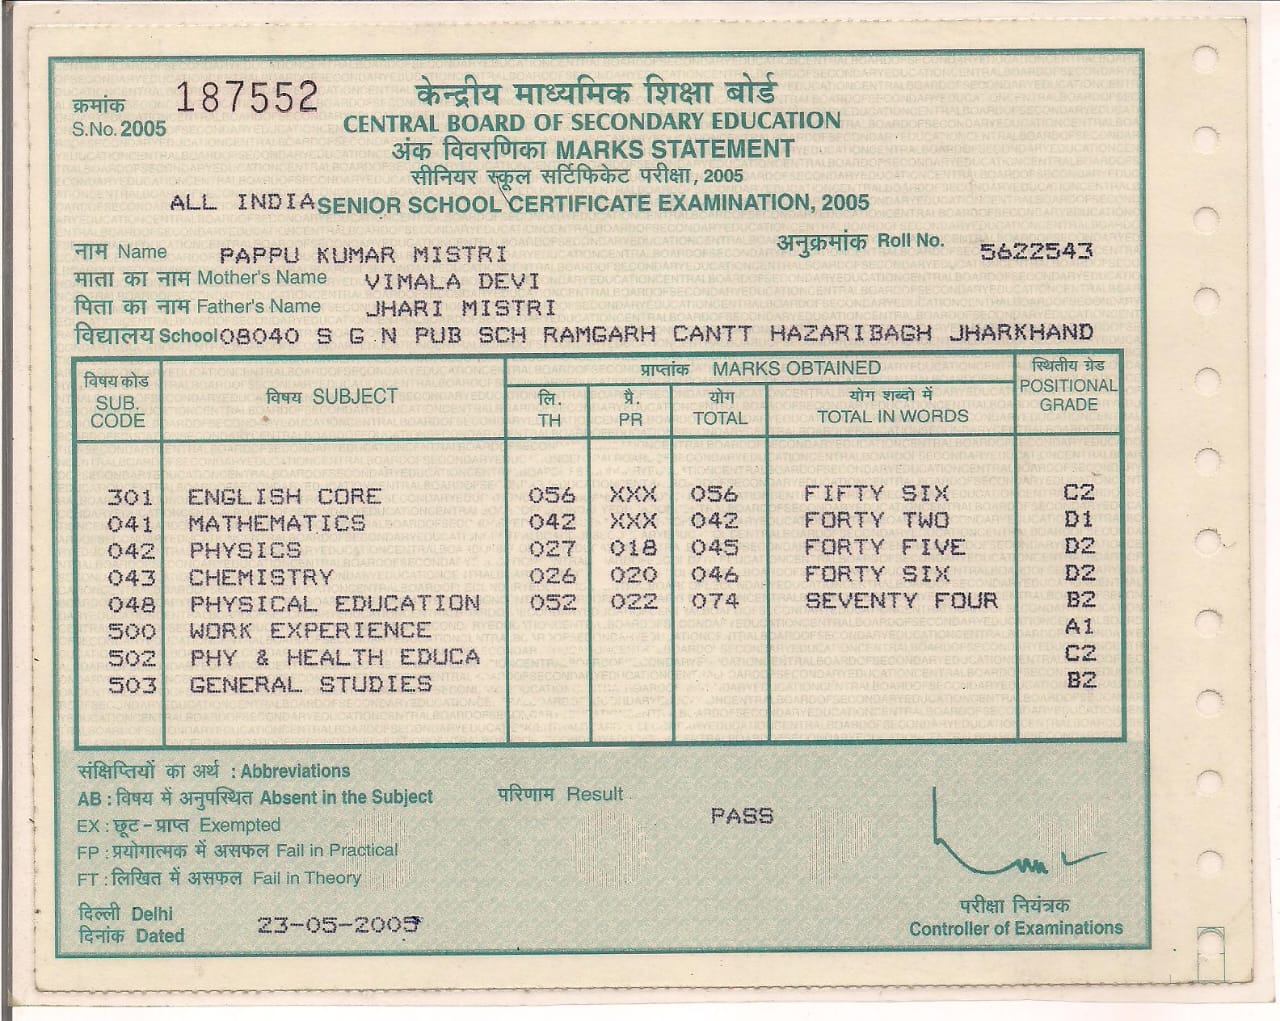 क्रमांक 187552
S.No. 2005
केन्द्रीय माध्यमिक शिक्षा बोर्ड
CENTRAL BOARD OF SECONDARY EDUCATION
अंक विवरणिका MARKS STATEMENT
सीनियर स्कूल सर्टिफिकेट परीक्षा, 2005
ALL INDIA SENIOR SCHOOL CERTIFICATE EXAMINATION, 2005
नाम Name PAPPU KUMAR MISTRI अनुक्रमांक Roll No. 5622543
माता का नाम Mother's Name VIMALA DEVI
पिता का नाम Father's Name JHARI MISTRI
विद्यालय School 08040 S G N PUB SCH RAMGARH CANTT HAZARIBAGH JHARKHAND
विषय कोड SUB. CODE विषय SUBJECT प्राप्तांक MARKS OBTAINED स्थितीय ग्रेड POSITIONAL GRADE
लि. TH प्रै. PR योग TOTAL योग शब्दो में TOTAL IN WORDS
301 ENGLISH CORE 056 XXX 056 FIFTY SIX C2
041 MATHEMATICS 042 XXX 042 FORTY TWO D1
042 PHYSICS 027 018 045 FORTY FIVE D2
043 CHEMISTRY 026 020 046 FORTY SIX D2
048 PHYSICAL EDUCATION 052 022 074 SEVENTY FOUR B2
500 WORK EXPERIENCE A1
502 PHY & HEALTH EDUCA C2
503 GENERAL STUDIES B2
संक्षिप्तियों का अर्थ : Abbreviations
AB : विषय में अनुपस्थित Absent in the Subject परिणाम Result PASS
EX : छूट - प्राप्त Exempted
FP : प्रयोगात्मक में असफल Fail in Practical
FT : लिखित में असफल Fail in Theory
दिल्ली Delhi परीक्षा नियंत्रक
दिनांक Dated 23-05-2005 Controller of Examinations